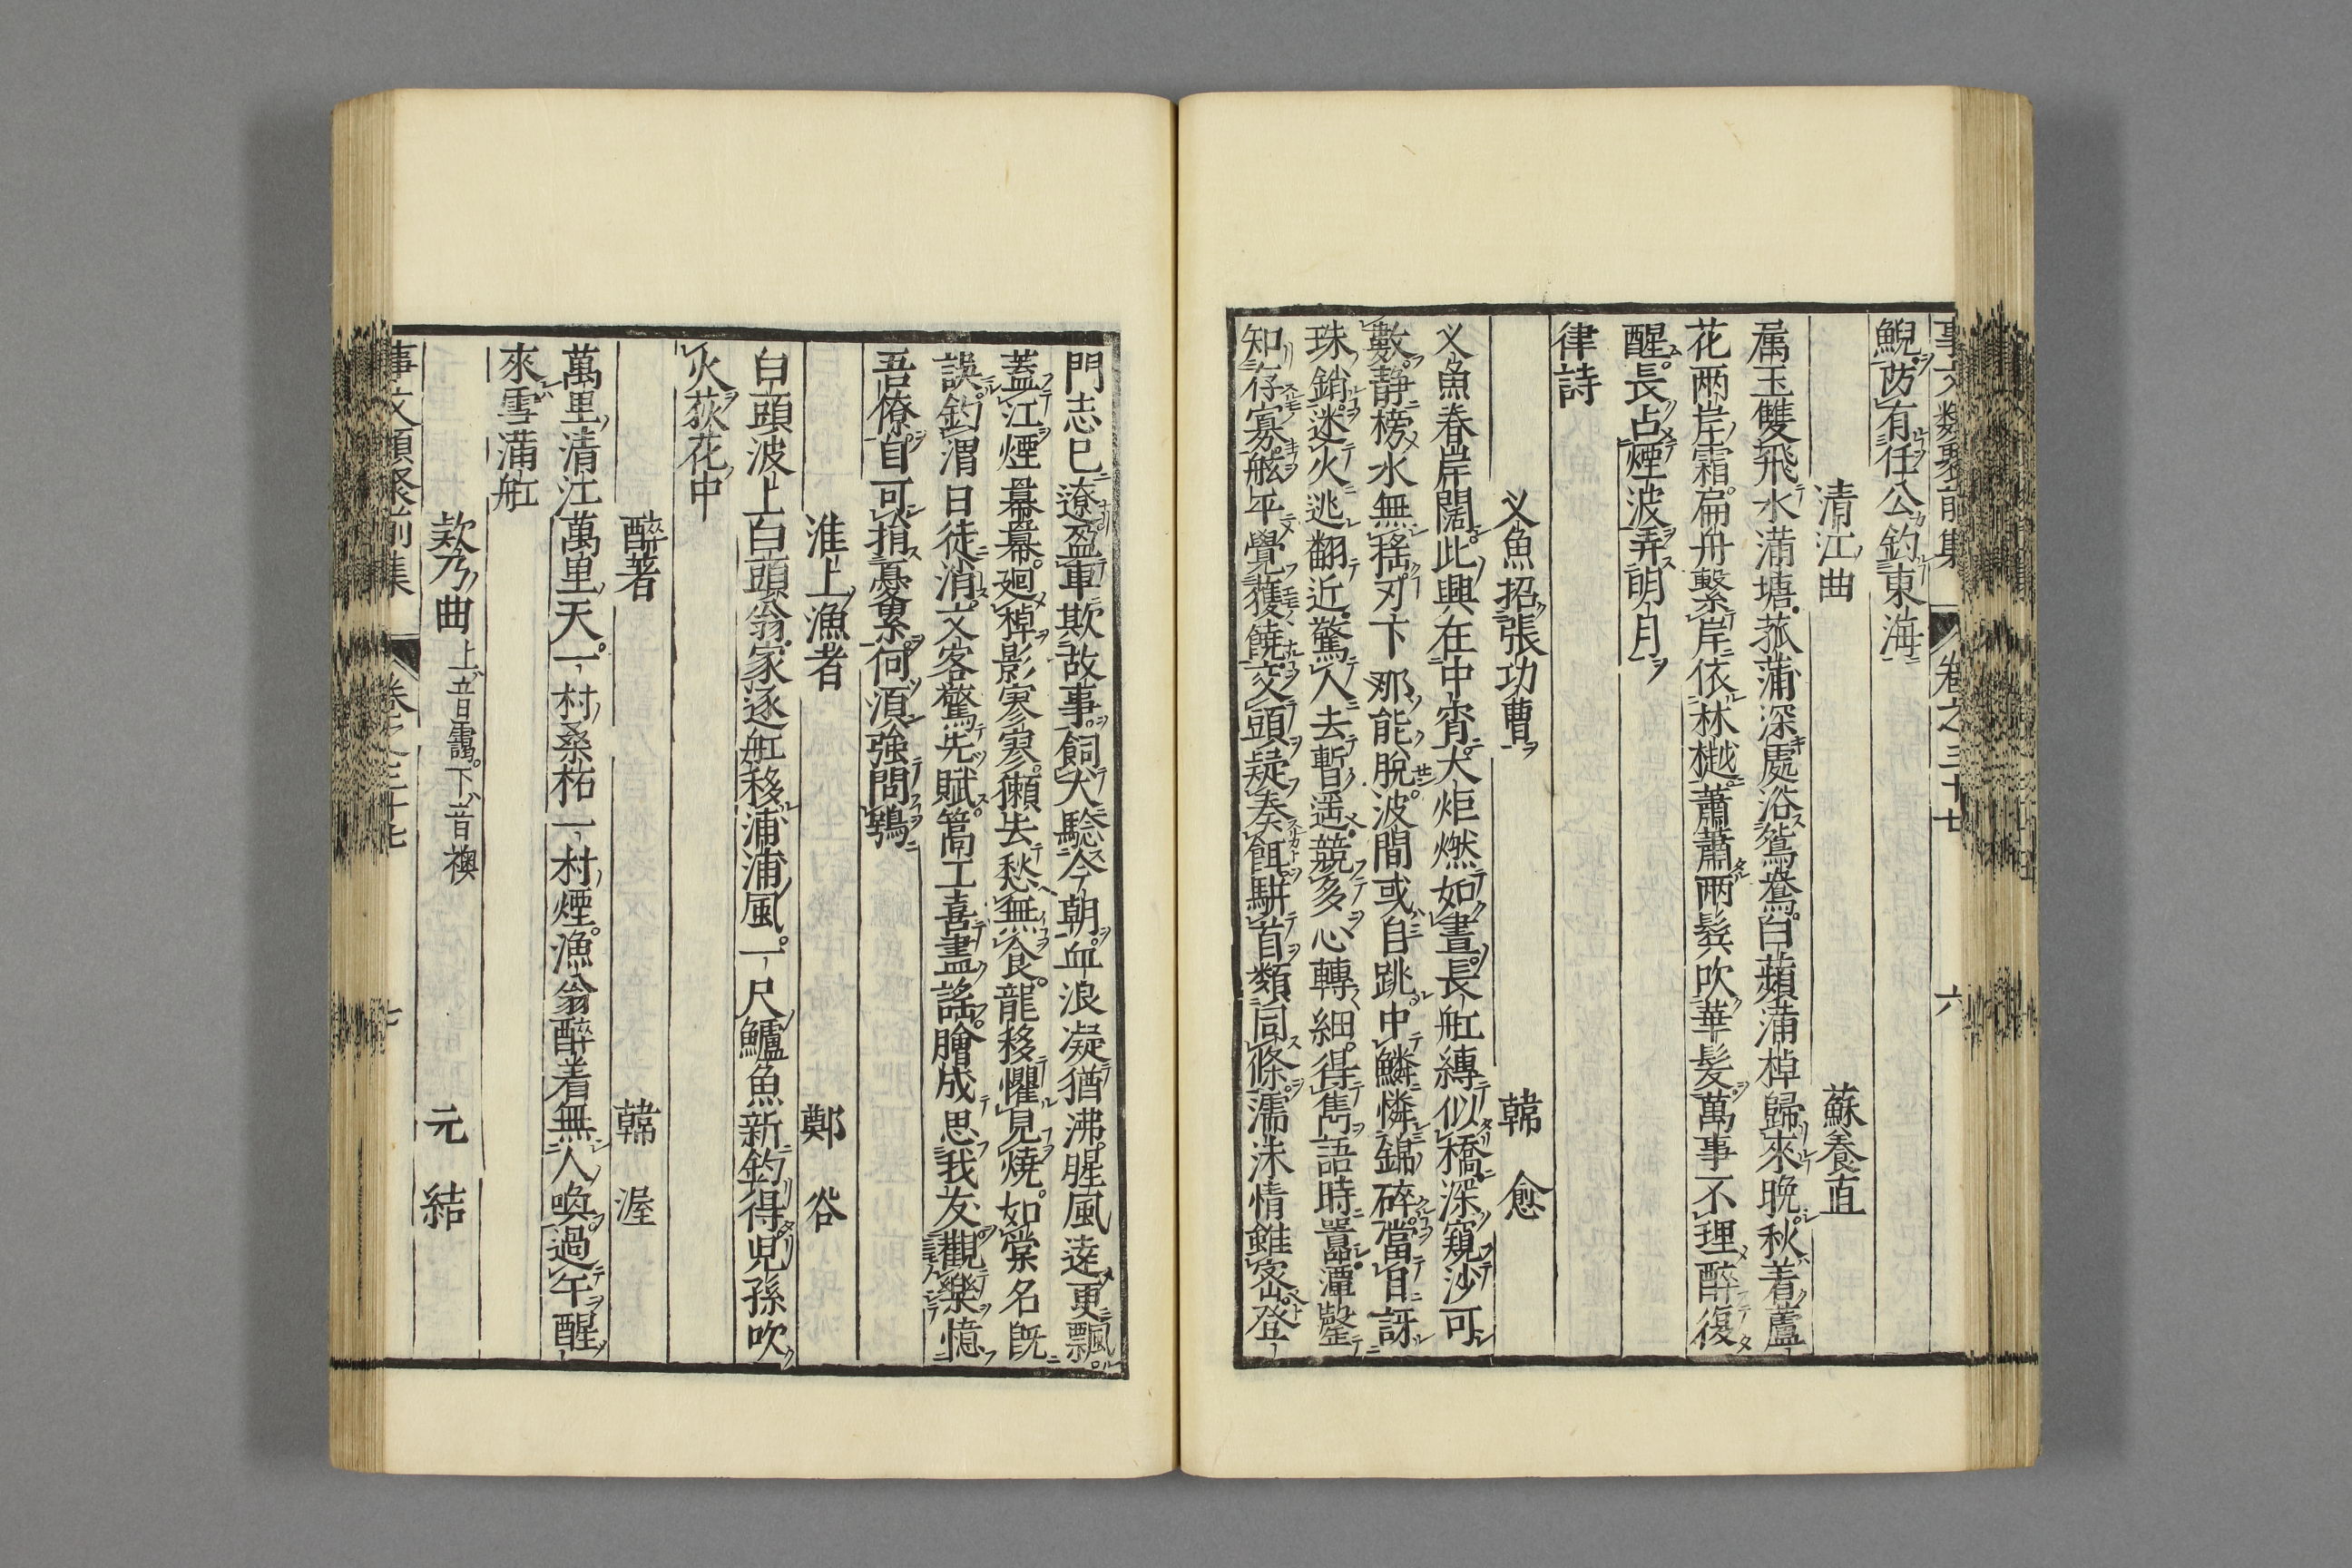 事文類聚前集 卷之三十七 六
鯢防有任公釣東海
清江曲 蘇養直
属玉雙飛水滿塘菰蒲深處浴鴛鴦白蘋滿棹歸來晩秋着蘆
花兩岸霜扁舟繫岸依林樾蕭蕭兩鬂吹華髪萬事不理醉復
醒長占煙波弄明月
律詩
义魚招張功曹 韓愈
义魚春岸闊此興在中宵大炬燃如晝長舩縛似橋深窺沙可
數静榜水無揺刃下那能脫波間或自跳中鱗憐錦碎當目訝
珠銷迷火逃翻近驚人去暫遥競多心轉細得雋語時囂潭罄
知存寡舷平覺獲饒交頭疑湊餌駢首類同條濡沫情雖密登
門志已遼盈車欺故事飼犬驗今朝血浪凝猶沸腥風逺更飄
蓋江煙羃羃廻棹影寥寥獺去愁無食龍移懼見燒如棠名既
誤釣渭日徒消文客驚先賦篙工喜盡謠膾成思我友觀樂憶
吾僚自可捐憂累何湏強問鴞
淮上漁者 鄭谷
白頭波上白頭翁家逐舩移浦浦風一尺鱸魚新釣得兒孫吹
火荻花中
醉著 韓渥
萬里清江萬里天一村桑柘一村煙漁翁醉着無人喚過午醒
來雪滿舩
欵乃曲上音靄下音襖 元結
事文類聚前集 卷之三十七 七